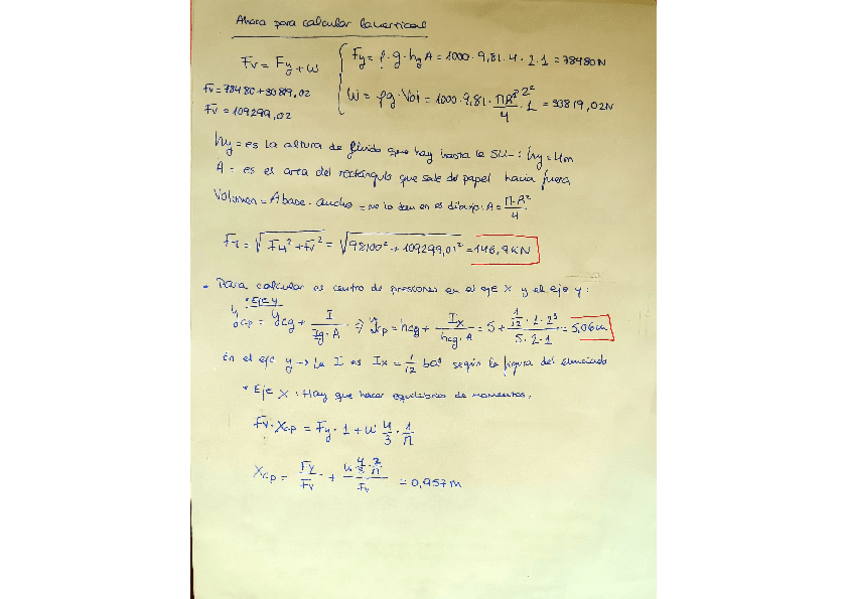 Ahora para calcular la vertical
Fv = Fy + w { Fy = ρ · g · hy A = 1000 · 9,81 · 4 · 2 · 1 = 78480N
Fv = 78480 + 30819,02
w = ρg · Vol = 1000 · 9,81 · π R² 2² / 4 · 1 = 30819,02N
Fv = 109299,02
hy = es la altura de fluido que hay hasta la : hy = 4m
A = es el area del rectángulo que sale del papel hacia fuera
Volumen = Abase · ancho = me lo dan en el dibujo: A = π · R² / 4
Fr = √ FH² + Fv² = √ 98100² + 109299,01² = 146,9 KN
• Para calcular el centro de presiones en el eje X y el eje y:
* Eje y
ycp = ycg + I / Ig · A ⇒ ycp = hcg + Ix / hcg · A = 5 + 1/12 · 1 · 2³ / 5 · 2 · 1 = 5,06 m
en el eje y → la I es Ix = 1/12 ba³ según la figura del enunciado
* Eje X : Hay que hacer equilibrio de momentos.
Fv · Xcp = Fy · 1 + w 4/3 · 1/π
Xcp = Fy / Fv + w 4/3 · 2/π / Fv = 0,957 m